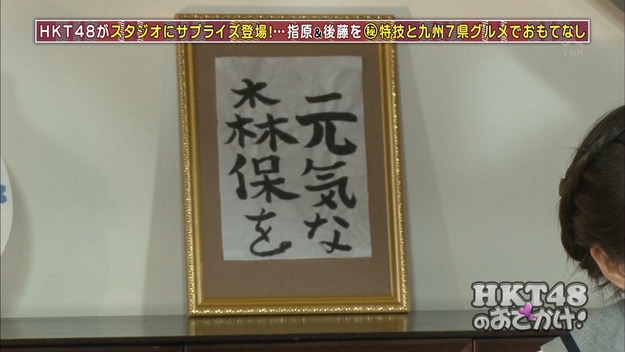 HKT48がスタジオにサプライズ登場!…指原&後藤を㊙特技と九州7県グルメでおもてなし
TBS
元気な
森保を
HKT48
のおでかけ!